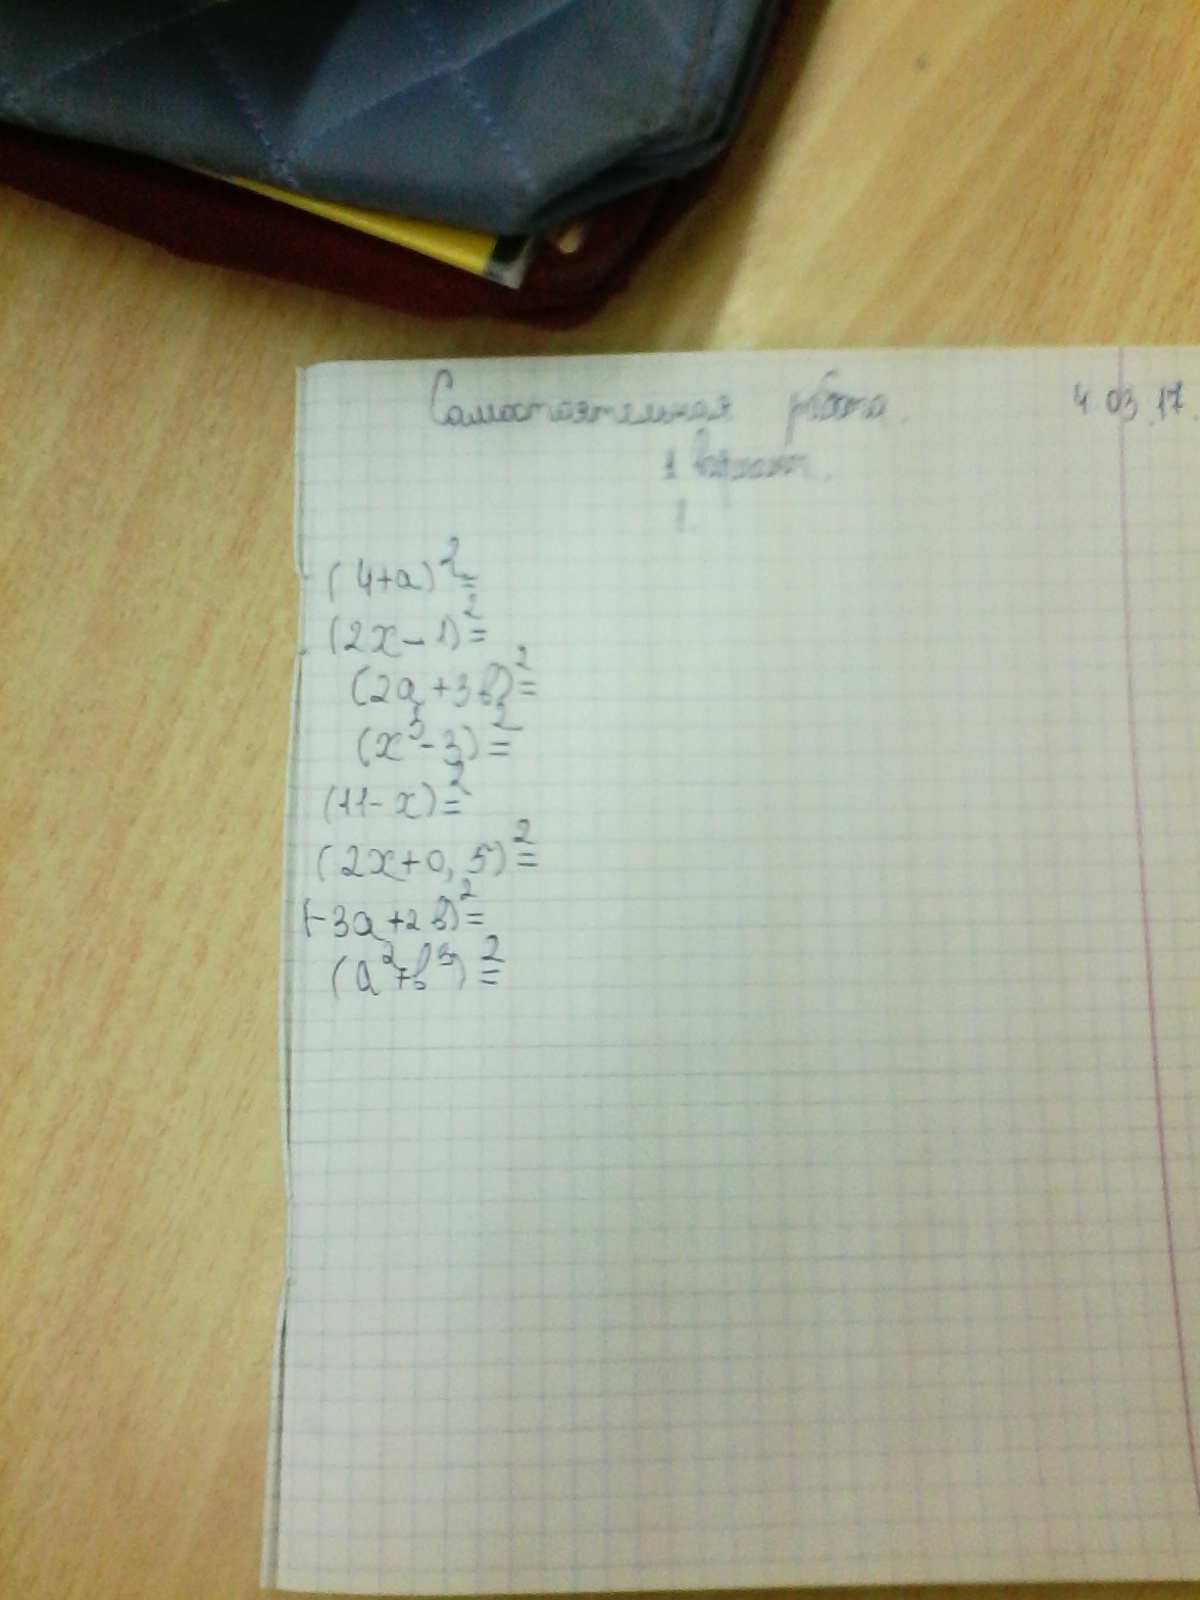 Самостоятельная работа. 4.03.17
1 вариант.
1.
(4+a)²=
(2x-1)²=
(2a+3b)²=
(x³-3)²=
(11-x)²=
(2x+0,5)²=
(-3a+2b)²=
(a²+b³)²=